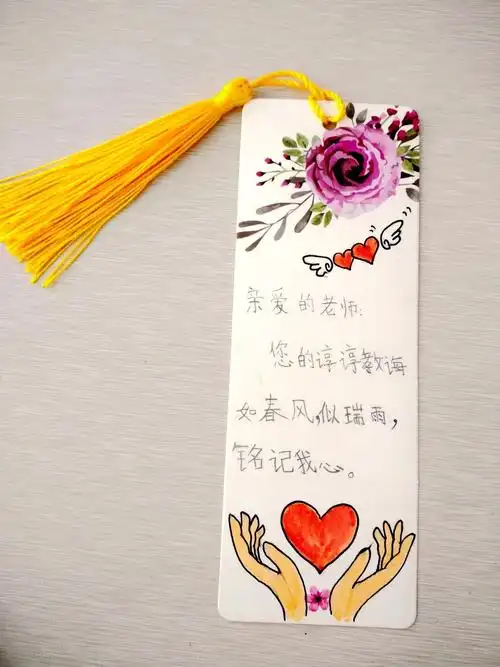 亲爱的老师:
您的谆谆教诲
如春风,似瑞雨,
铭记我心。